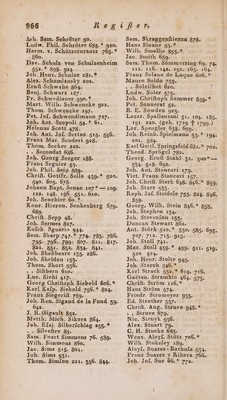 966 Register.
Joh. Sam. Schröter 50.
Ludw. Phil. Schröter 685. * 920.
Herm. v. Schützercrantz 765. *
860.
Dav. Schulz von Schulzenheim
552. * 808. 924.
Joh. Heur. Schulze 181. *
Alex. Schumlansky 202.
Ernst Schwabe 805.
Berg Schwarz 157.
Fr. Schwediauer 590. *
Mart. Wilh. Schwencke 921.
Thom. Schwencke 191.
Pet. Jos. Schwendimann 727.
Joh. Ant. Scopoli 54. * 61.
Helenus Scott 478.
Joh. Ant. Jos. Scrinci 515. 596.
Franz Mar. Scuderi 928.
Thom. Secker 200.
Secondat 628.
Joh. Georg Seeger 188.
Franz Seguier 55.
Joh. Phil. Seip 889.
Christ. Gottfr. Selle 459. * 510.
540. 605. 872.
Johann Bapt. Senac 107 * — 109.
122. 148. 196. 551. 610.
Joh. Senebier 60. *
Knur. Hieron. Senkenberg 679.
689.
Christ. Sepp 48.
Joh. Sermes 827.
Eusch. Sguario 944.
Sam. Sharp 747. * 774. 785. 786.
795. 796. 799. 807. 811. 817.
821. 851. 852. 854. 841.
Joh. Shebbeare 135. 286.
Joh. Sheldon 195.
Thom. Short 905.
Sibbern 610.
Luc. Siehl 417.
Georg Christoph Siebold 606. *
Karl Kasp. Siebold 756. * 824.
Franz Siegerist 759.
Joh. Rene. Sigaud de la Fond 59.
642.
J. R. Sigault 851.
Matth. Mich. Sikora 864.
Joh. Esaj. Silberschlag 255. *
Silvestre 85.
Sam. Foart Simmons 76. 589.
Wilh. Simmons 860.
Jac. Sims 515. 804.
Joh. Sims 931.
Thom. Simson 221. 536. 844.
Sam. Skragge 878.
Hans Sloane 55. *
Wilh. Smellie 855. *
Jac. Smith 689.
Sam. Thom. Sömmerring 69. 74.
112. 118. 141. 152. 165. 164.
Franz Solano de Luques 606. *
Mauro Soldo 759.
Soleilhet 610.
Ludw. Soler 575.
Joh. Christoph Sommer 859. *
Pet. Sonnerat 51.
de E. Sowden 279.
Lor. Spengler 658. 859.
Joh. Reinh. Spielmann 55. * 194.
311. 584.
Karl Gottl. Springsfeld 681. * 702.
Theod. Sprögel 781.
Georg. Ernst Stahl 51. 500 * —
554. 518. 859.
Joh. Ant. Starcani 179.
Vict. Franz Stancari 167.
Joh. Christ. Stark 648. 846. * 859.
Joh. Starr 555.
Raph. Joh. Steidele 755. 824. 846.
859.
Georg. Wilh. Stein 846. * 858.
Joh. Stephen 152.
Joh. Stevenson 155.
Duncan Stewart 861.
Ant. Störk 505. 510. * 625. 645.
707. 712. 715. 915.
Joh. Stoll 741.
Max. Stoll 459. * 489. 511. 519.
520. 524.
Joh. Herr. Stolte 945.
Joh. Storch 546.
Karl Strack 552. * 619. 716.
Gaëtan. Strambio 464. 575.
Christ. Ström 116. *
Hans Ström 574.
Friedr. Stromeyer 955.
Ed. Strother 557.
Christ. Aug. Struve 948. *
Struve 679.
Nic. Struyk 556.
Alex. Stuart 79.
G. H. Stucke 685.
Wenz. Aloys. Stütz 706. *
Wilh. Stukeley 189.
Aloys. Suarez Barbosa 554.
Franz Suarez y Ribera 766.
Joh. Jos. Sue 66. * 772.